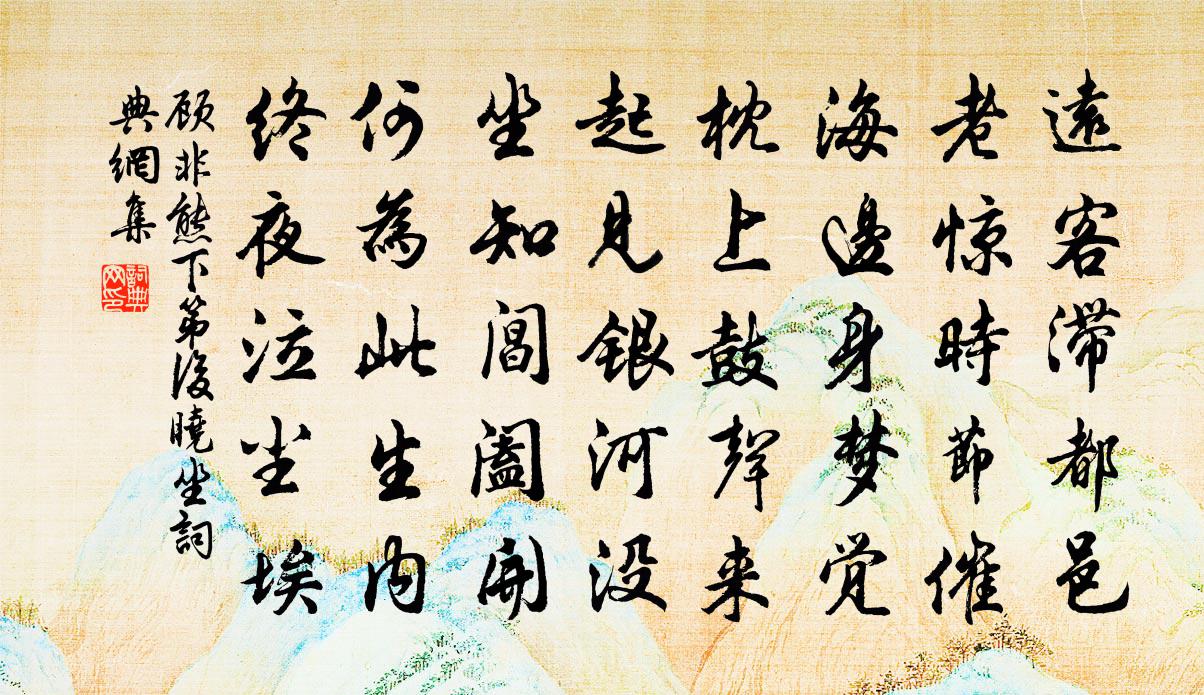 遠客滯都邑
老惊時節催
海邊身梦覚
枕上鼓聲来
起見銀河没
坐知閶闔開
何為此生內
終夜泣尘埃
顾非熊下第後曉坐詞
典網集
詞典
网印